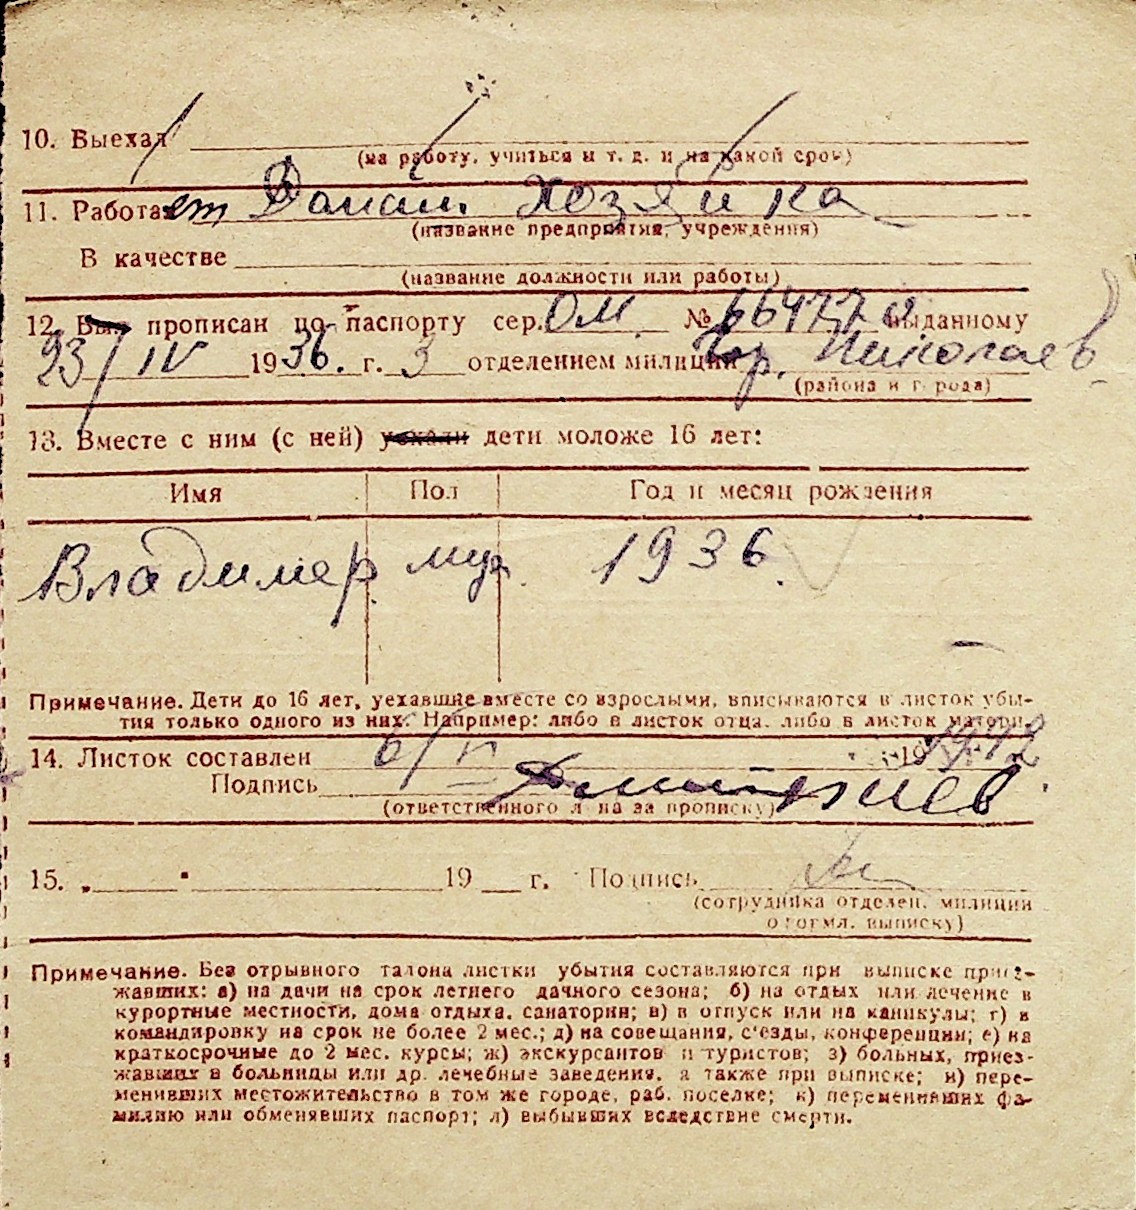 10. Выехал
(на работу, учиться и т. д. и на какой срок)
11. Работает Домаш. Хозяйка
(название предприятия, учреждения)
В качестве
(название должности или работы)
12. Был прописан по паспорту сер. ОМ № выданному
23/IV 1936. г. 3 отделением милиции гор. Николаев
(района и города)
13. Вместе с ним (с ней) уехали дети моложе 16 лет:
Имя Пол Год и месяц рождения
Владимер муж. 1936.
Примечание. Дети до 16 лет, уехавшие вместе со взрослыми, вписываются в листок убы-
тия только одного из них. Например: либо в листок отца, либо в листок матери.
14. Листок составлен 19
Подпись
(ответственного л на за прописку)
15. „ " 19 г. Подпись
(сотрудника отделен. милиции
оформл. выписку)
Примечание. Без отрывного талона листки убытия составляются при выписке приез-
жавших: а) на дачи на срок летнего дачного сезона; б) на отдых или лечение в
курортные местности, дома отдыха, санатории; в) в отпуск или на каникулы; г) в
командировку на срок не более 2 мес.; д) на совещания, с'езды, конференции; е) на
краткосрочные до 2 мес. курсы; ж) экскурсантов и туристов; з) больных, приез-
жавших в больницы или др. лечебные заведения, а также при выписке; и) пере-
менивших местожительство в том же городе, раб. поселке; к) переменивших фа-
милию или обменявших паспорт; л) выбывших вследствие смерти.